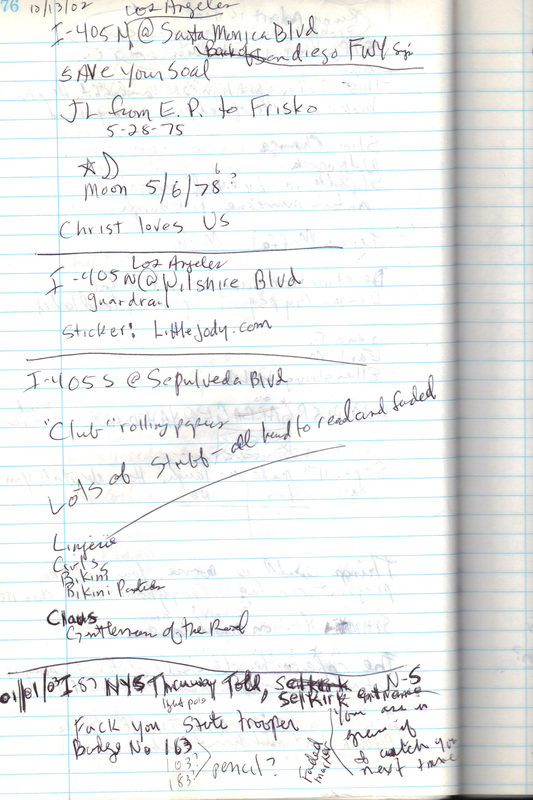 76 10/13/02 Los Angeles
I-405 N @ Santa Monica Blvd
Back of San diego FWY sign
SAVE Your Soal
JL from E.P. to Frisko
5-28-75
Moon 5/6/78 6?
Christ loves Us
Los Angeles
I-405 N @ Wilshire Blvd
guardrail
Sticker: LittleJody.com
I-405 S @ Sepulveda Blvd
"Club" rolling papers
Lots of stuff - all hard to read and faded
Lingerie
Girls
Bikini
Bikini Panties
Claus
Gentleman of the Road
01/01/03 I-87 NYS Thruway Toll, Selkirk entrance N-S
light pole
Fuck you State trooper
Badge No 163
103?
183?
pencil?
Faded marker
You are in
if
I catch you
next time